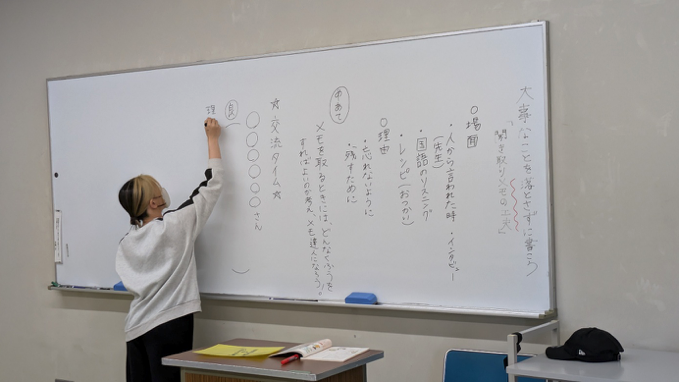 大事なことを落とさずに書こう
「聞き取りメモの工夫」
○場面
・人から言われた時 ・インタビュー
(先生)
・国語のリスニング
・レシピ(おつかい)
○理由
・忘れないように
・残すために
めあて
メモを取るときには、どんなくふうを
すればよいのか考え、メモ達人になろう。
☆交流タイム☆
○○○○○○さん
良
理